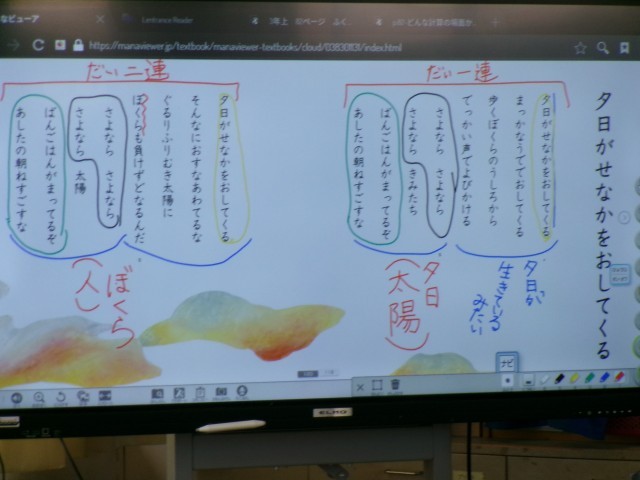 なビューア
Lentrance Reader
3年上
https://manaviewer.jp/textbook/manaviewer-textbooks/cloud/03830113l/index.html
夕日がせなかをおしてくる
だい一連
夕日がせなかをおしてくる
まっかなうででおしてくる
歩くぼくらのうしろから
でっかい声でよびかける
さよなら さよなら
さよなら きみたち
ばんごはんがまってるぞ
あしたの朝ねすごすな
夕日が
生きている
みたい
夕日
(太陽)
だい二連
夕日がせなかをおしてくる
そんなにおすなあわてるな
ぐるりふりむき太陽に
ぼくらも負けずどなるんだ
さよなら さよなら
さよなら 太陽
ばんごはんがまってるぞ
あしたの朝ねすごすな
ぼくら
(人)
ナビ
ELMO